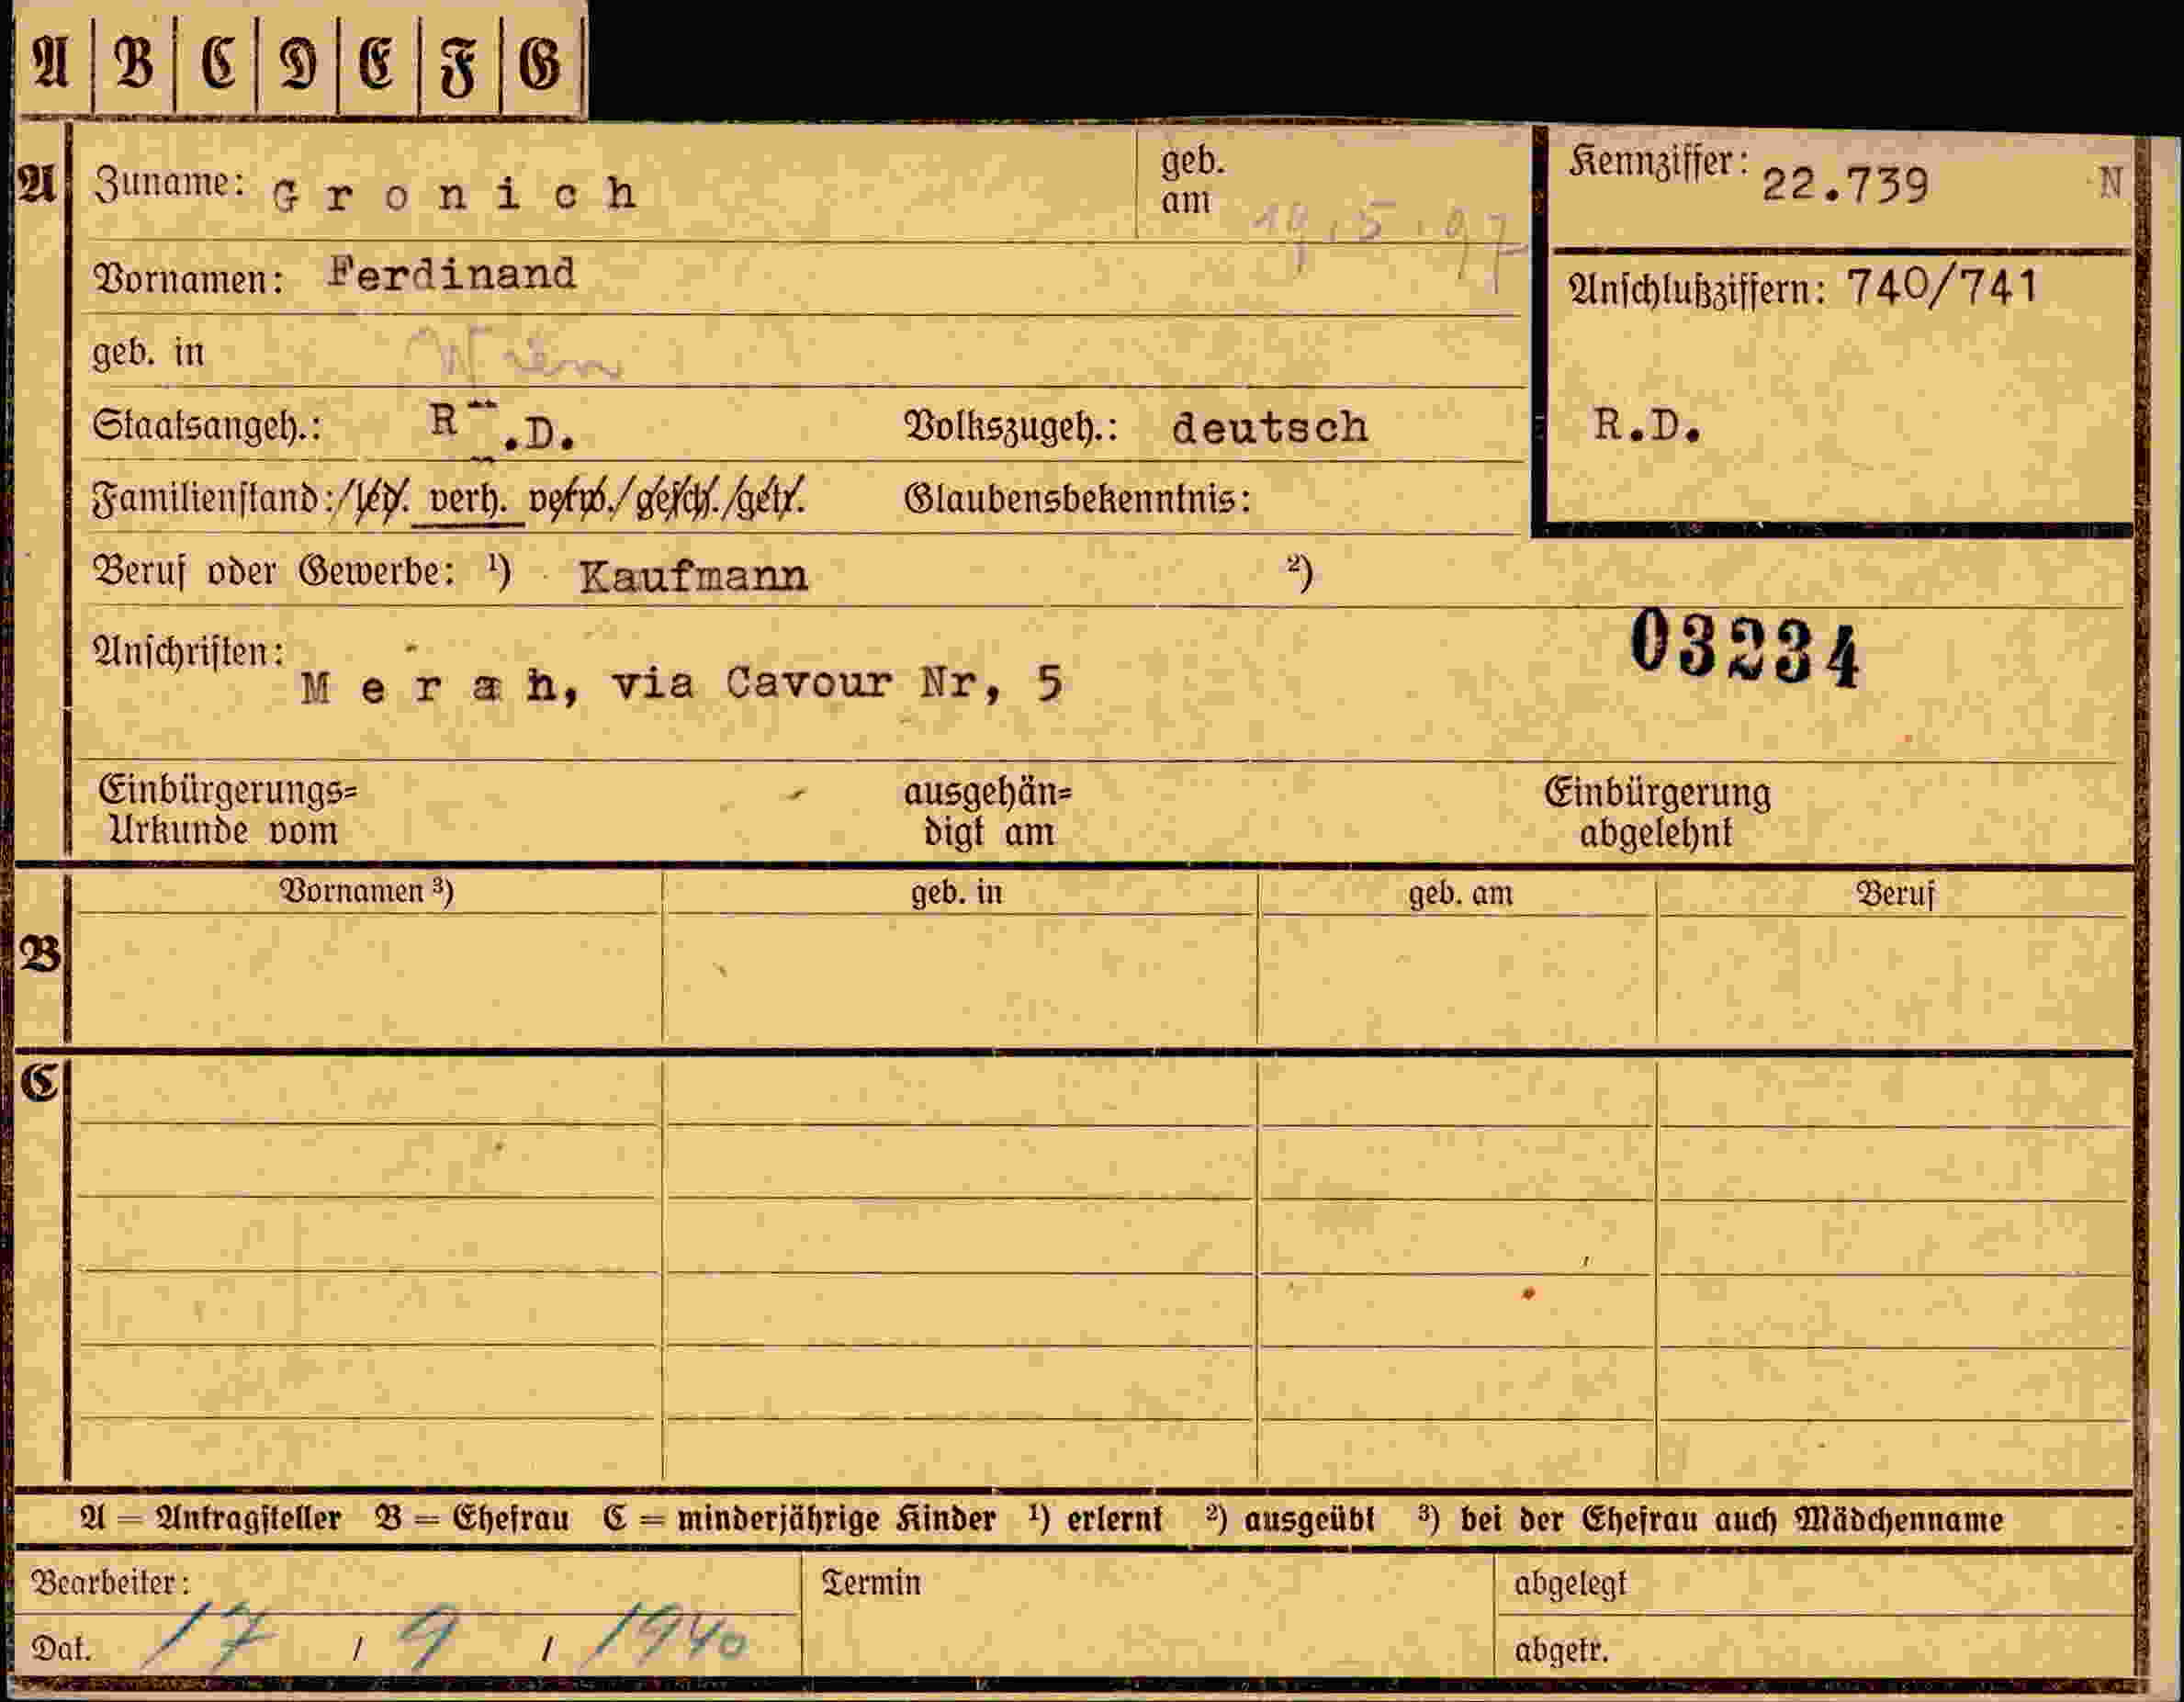 A B C D E F G
A Zuname: Gronich geb. am 19.5.97 Kennziffer: 22.739 N
Vornamen: Ferdinand Anschlußziffern: 740/741
geb. in Wien
Staatsangeh.: R.D. Volkszugeh.: deutsch R.D.
Familienstand: /led. verh. verw./gesch./getr. Glaubensbekenntnis:
Beruf oder Gewerbe: ¹) Kaufmann ²)
03234
Anschriften: Meran, via Cavour Nr, 5
Einbürgerungs= ausgehän= Einbürgerung
Urkunde vom digt am abgelehnt
Vornamen ³) geb. in geb. am Beruf
B
C
A = Antragsteller B = Ehefrau C = minderjährige Kinder ¹) erlernt ²) ausgeübt ³) bei der Ehefrau auch Mädchenname
Bearbeiter: Termin abgelegt
Dat. 17 / 9 / 1940 abgetr.